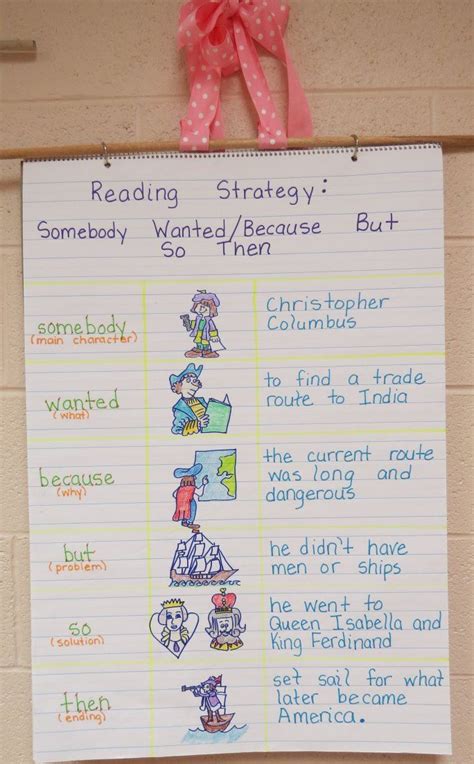 Reading Strategy:
Somebody Wanted/Because But
So Then
somebody
(main character)
Christopher
Columbus
wanted
(what)
to find a trade
route to India
because
(why)
the current route
was long and
dangerous
but
(problem)
he didn't have
men or ships
so
(solution)
he went to
Queen Isabella and
King Ferdinand
then
(ending)
set sail for what
later became
America.